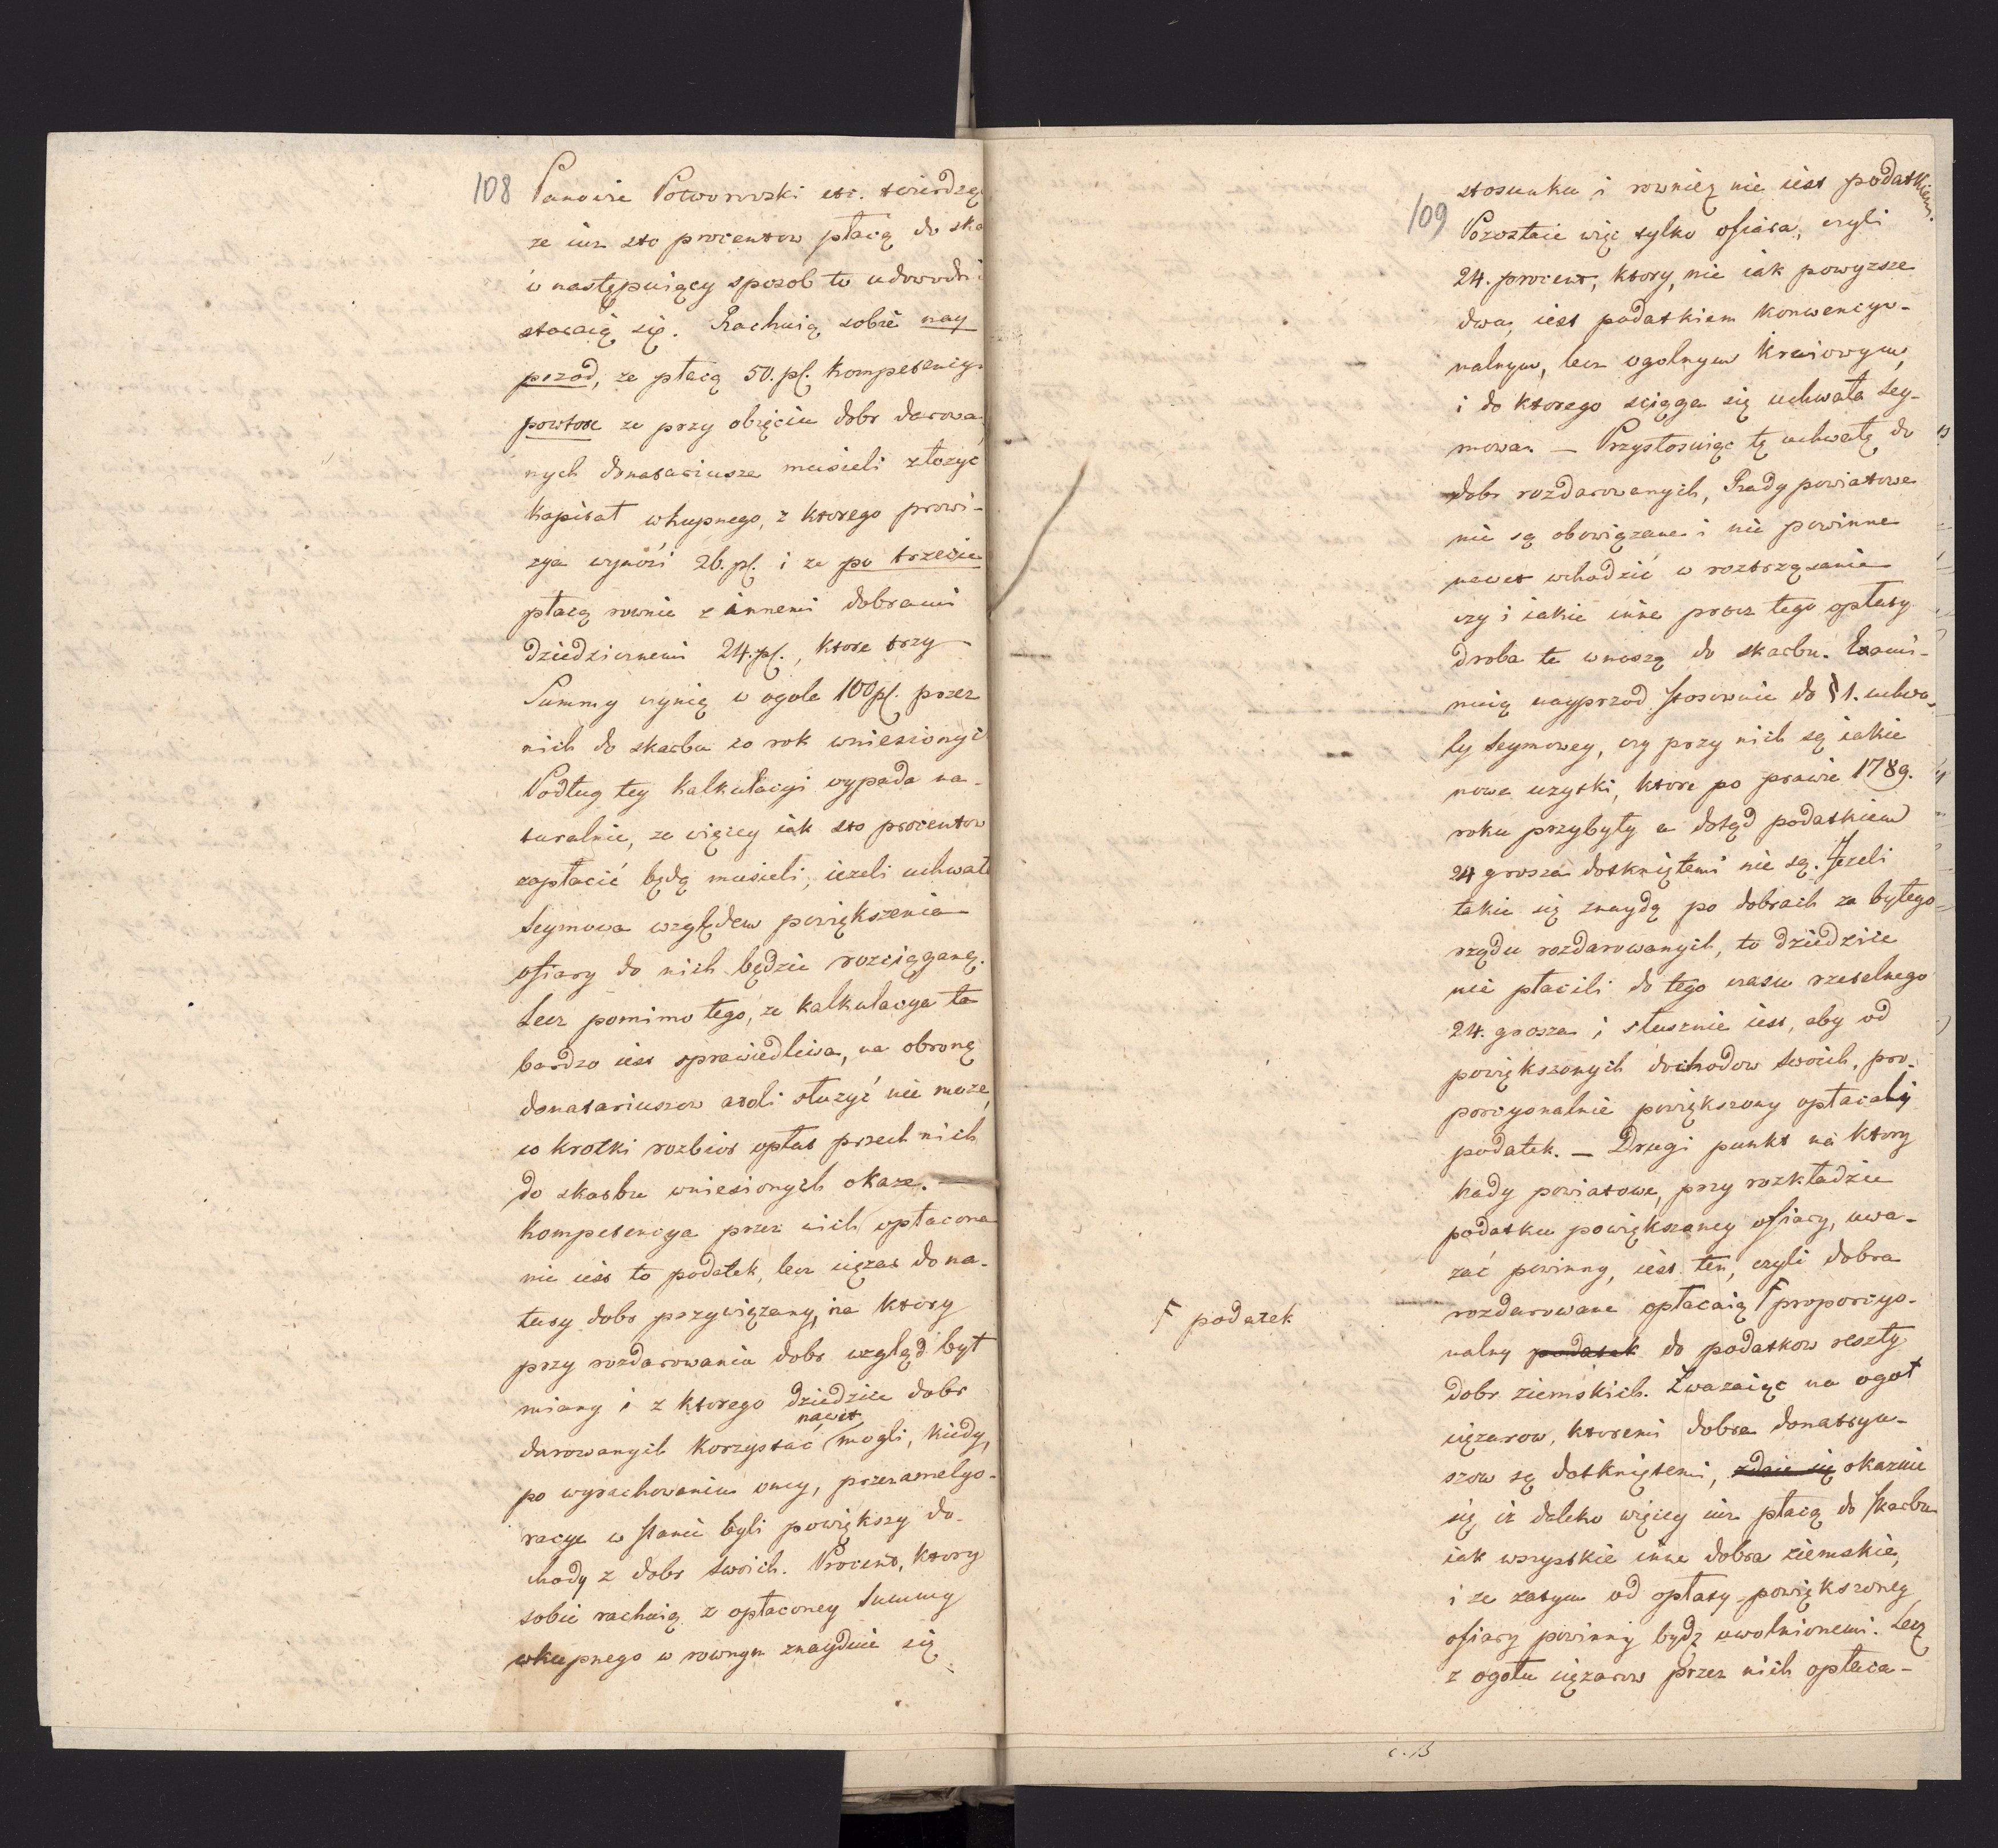 108
Panowie Potworowski etc. twierdzą
ze iuz sto procentow płacą do ska
i w następuiący sposob to udowodni
staraią się. Rachuią sobie nay
przod, ze płacą 50. pC. kompetencyi
powtore ze przy obięciu dobr darowa
nych donataryusze musieli złozyc
kapitał wkupnego, z ktorego prowi-
zya wynosi 26. pC. i ze po trzecie
płacą rownie z innemi dobrami
dziedzicznemi 24. pC., ktore trzy
Summy czynią w ogole 100 pC. przez
nich do skarbu co rok wniesionych
Podług tey kalkulacyi wypada na-
turalnie, ze więcey iak sto procentow
zapłacić będą musieli, iezeli uchwała
Seymowa względem powiększenia
ofiary do nich będzie rozciąganą.
Lecz pomimo tego, ze kalkulacya ta
bardzo iest sprawiedliwa, na obronę
donatariuszow azoli słuzyć nie moze,
co krotki rozbior opłat przech nich
do skarbu wniesionych okaze. —
Kompetencya przez nich opłacona
nie iest to podatek, lecz cięzar do na-
tury dobr przywiązany, na ktory
przy rozdarowaniu dobr wzgląd był
miany i z ktorego dziedzice dobr
nawet
darowanych korzystać mogli, kiedy,
po wyrachowaniu oney, przez amelyo-
racye w stanie byli powiększy do-
chody z dobr swoich. Procent, ktory
sobie rachuią z opłaconey Summy
wkupnego w rownym znayduie się
109
stosunku i rownież nie iest podatkiem.
Pozostaie więc tylko ofiara, czyli
24. procent, ktory, nie iak powyzsze
dwa, iest podatkiem konwencyo-
nalnym, lecz ogolnym kraiowym,
i do ktorego sciąga się uchwała Sey-
mowa. — Przystosuiąc tę uchwałę do
dobr rozdarowanych, Rady powiatowe
nie są obowiązane i nie powinne
nawet wchodzić w roztrząsanie
czy i iakie inne procz tego opłaty
droba te wnoszą do skarbu. Exami-
nuią nayprzod stosownie do § 1. uchwa-
ły Seymowey, czy przy nich są iakie
nowe uzytki, ktore po prawie 1789.
roku przybyły a dotąd podatkiem
24 grosza dotkniętemi nie są. Jezeli
takie się znaydą po dobrach za byłego
rządu rozdarowanych, to dziedzice
nie płacili do tego czasu rzetelnego
24. grosza i słusznie iest, aby od
powiększonych dochodow swoich, pro-
porcyonalnie powiększony opłacaly
podatek. — Drugi punkt na ktory
Rady powiatowe, przy rozkładzie
podatku powiększoney ofiary, uwa-
zać powinny, iest ten, czyli dobra
rozdarowane opłacaią F proporcyo-
F podatek
nalny podatek do podatkow reszty
dobr ziemskich. Zwazaiąc na ogoł
cięzarow, ktoremi dobra donataryu-
szow są dotkniętemi, zdaie się okazuie
się iz daleko więcey iuz płacą do skarbu
iak wszystkie inne dobra ziemskie,
i ze zatym od opłaty powiększoney
ofiary powinny bydź uwolnionemi. Lecz
z ogołu cięzarow przez nich opłaca-